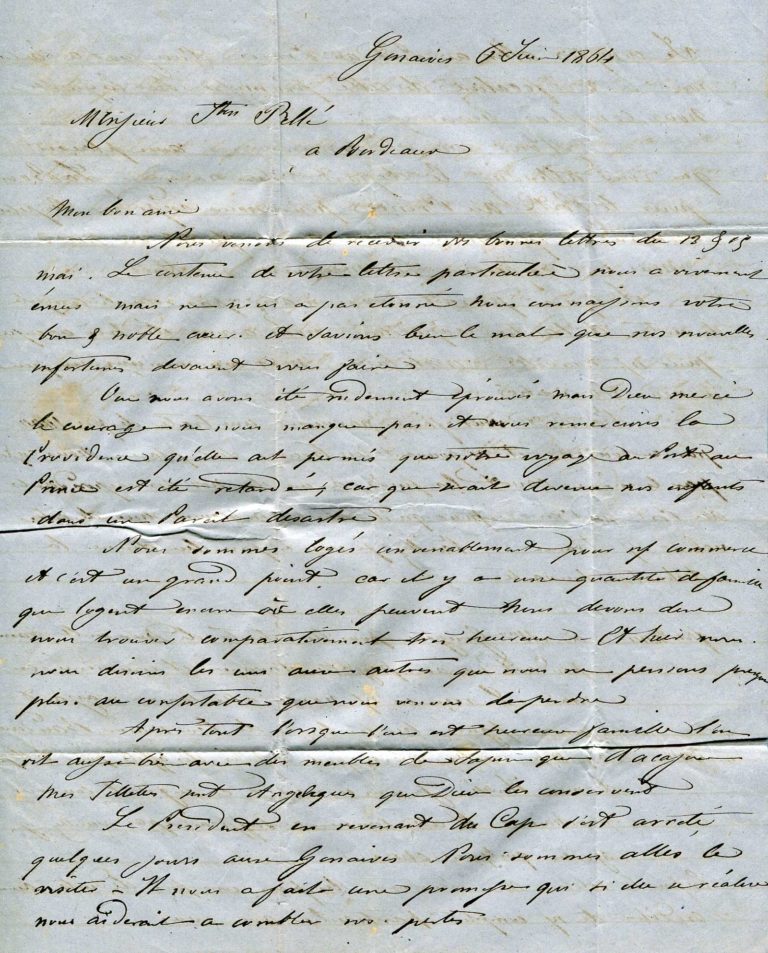 Gonaives 6 Juin 1864
Monsieur Pellé
a Bordeaux
Mon bon ami
Nous venons de recevoir vos bonnes lettres du 13 & 15
mai. Le contenu de votre lettre particulière nous a vivement
émus mais ne nous a pas étonné nous connaissons votre
bon & noble cœur. et savions bien le mal que nos nouvelles
infortunes devaient vous faire
Oui nous avons été rudement éprouvés mais Dieu merci
le courage ne nous manque pas. et nous remercions la
Providence qu'elle ait permis que notre voyage au Port au
Prince eut été retardé, car que serait devenu nos enfants
dans un Pareil desastre
Nous sommes logés convenablement pour n/ commerce
et c'est un grand point car il y a une quantité de famille
que logent encore où elles peuvent Nous devons donc
nous trouver comparativement très heureux - Et hier nous
nous disions les uns aux autres que nous ne pensions presque
plus. au confortable que nous venons de perdre
Après tout lorsque l'on est heureux famille l'on
vit aussi bien avec des meubles de Sapin que d'acajou
Mes fillettes sont Angéliques que Dieu les conservent
Le President en revenant du Cap s'est arreté
quelques jours aux Gonaives Nous sommes allés le
visiter - Il nous a fait une promesse qui si elle se réalise
nous aiderait a combler nos pertes